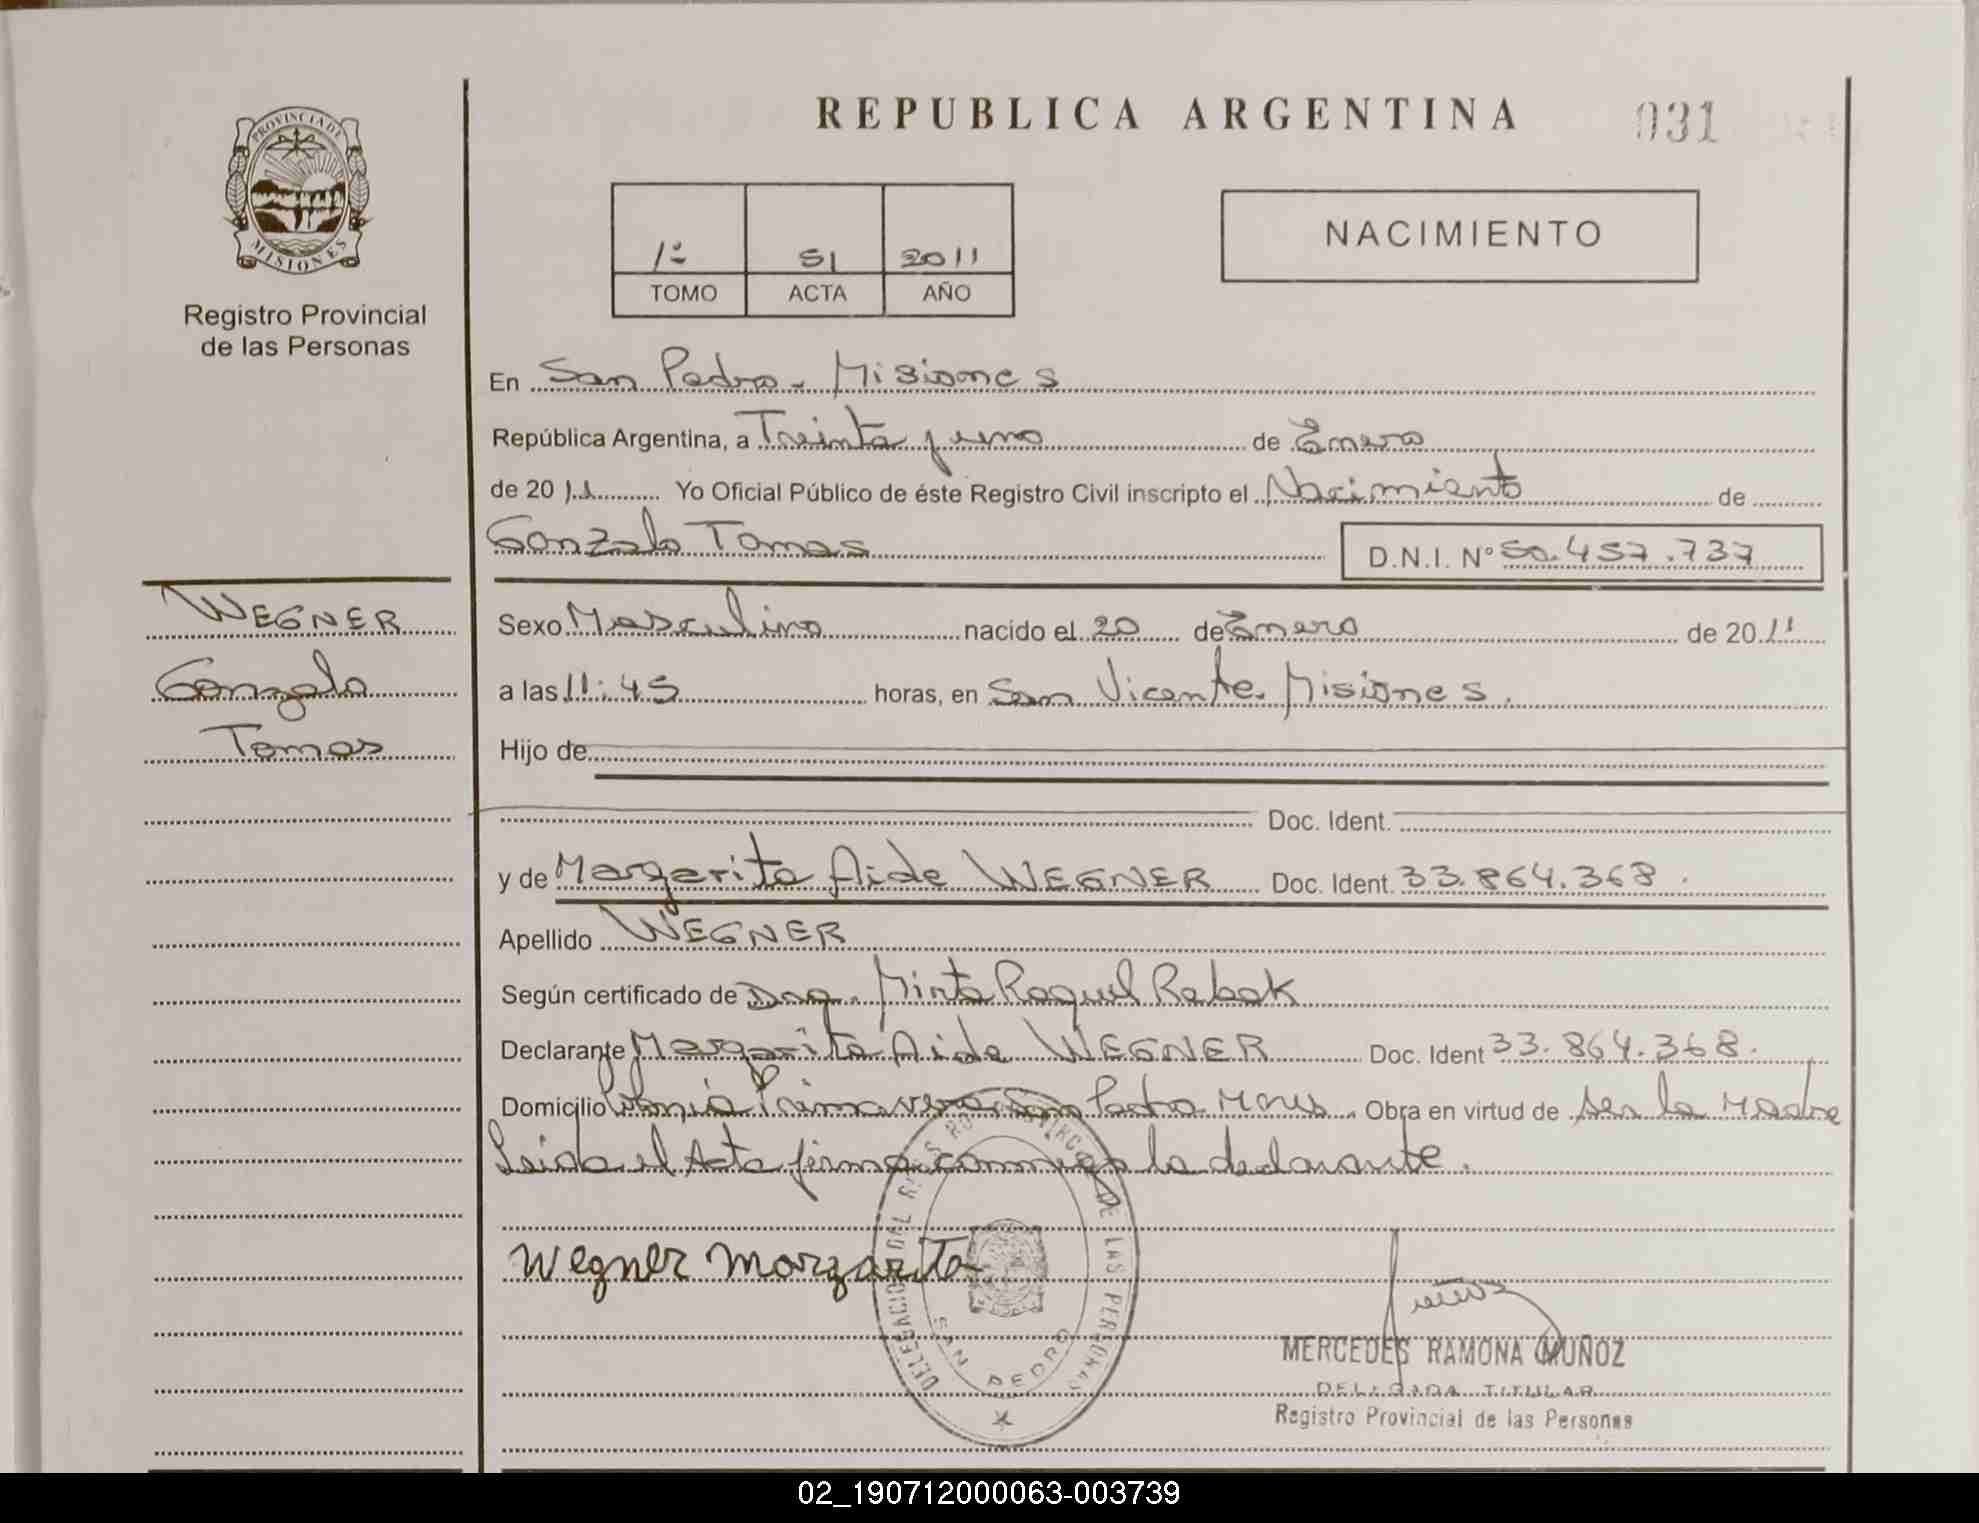 REPUBLICA ARGENTINA
031
PROVINCIA DE
MISIONES
Registro Provincial
de las Personas
1º
51
2011
TOMO
ACTA
AÑO
NACIMIENTO
En San Pedro - Misiones
República Argentina, a Treinta y uno de Enero
de 2011 Yo Oficial Público de éste Registro Civil inscripto el Nacimiento de
Gonzalo Tomas D.N.I. Nº 50.457.737
WEGNER
Gonzalo
Tomas
Sexo Masculino nacido el 20 de Enero de 2011
a las 11:45 horas, en San Vicente. Misiones.
Hijo de
Doc. Ident.
y de Margarita Aide WEGNER Doc. Ident. 33.864.368.
Apellido WEGNER
Según certificado de Dra. Mirta Raquel Rebak
Declarante Margarita Aide WEGNER Doc. Ident 33.864.368.
Domicilio Colonia Primavera San Pedro Mnes. Obra en virtud de ser la Madre
Leida el Acta firma conmigo la declarante.
Wegner Margarita
DELEGACION DEL REGISTRO PROVINCIAL DE LAS PERSONAS
SAN PEDRO
MERCEDES RAMONA MUÑOZ
DELEGADA TITULAR
Registro Provincial de las Personas
02_190712000063-003739